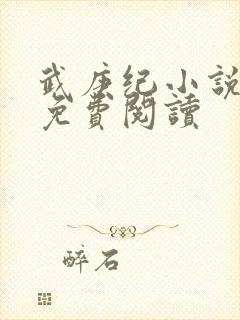 武庚纪小説
免費閱讀
醉石